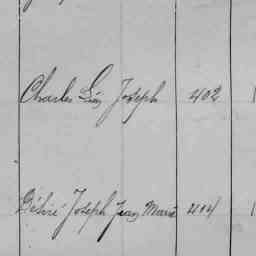 Charles Guy Joseph 402
Désiré Joseph Jean Marie 404